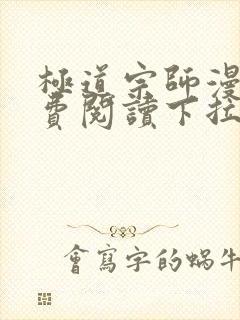 極道宗師漫
費閱讀下拉
會寫字的蝸牛